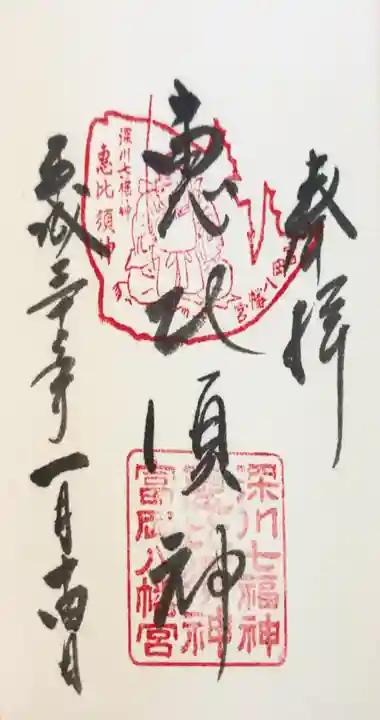 奉拝
惠比須神
平成三十年一月十四日
富岡八幡宮
深川七福神
恵比須神
深川七福神
恵比須神
富岡八幡宮